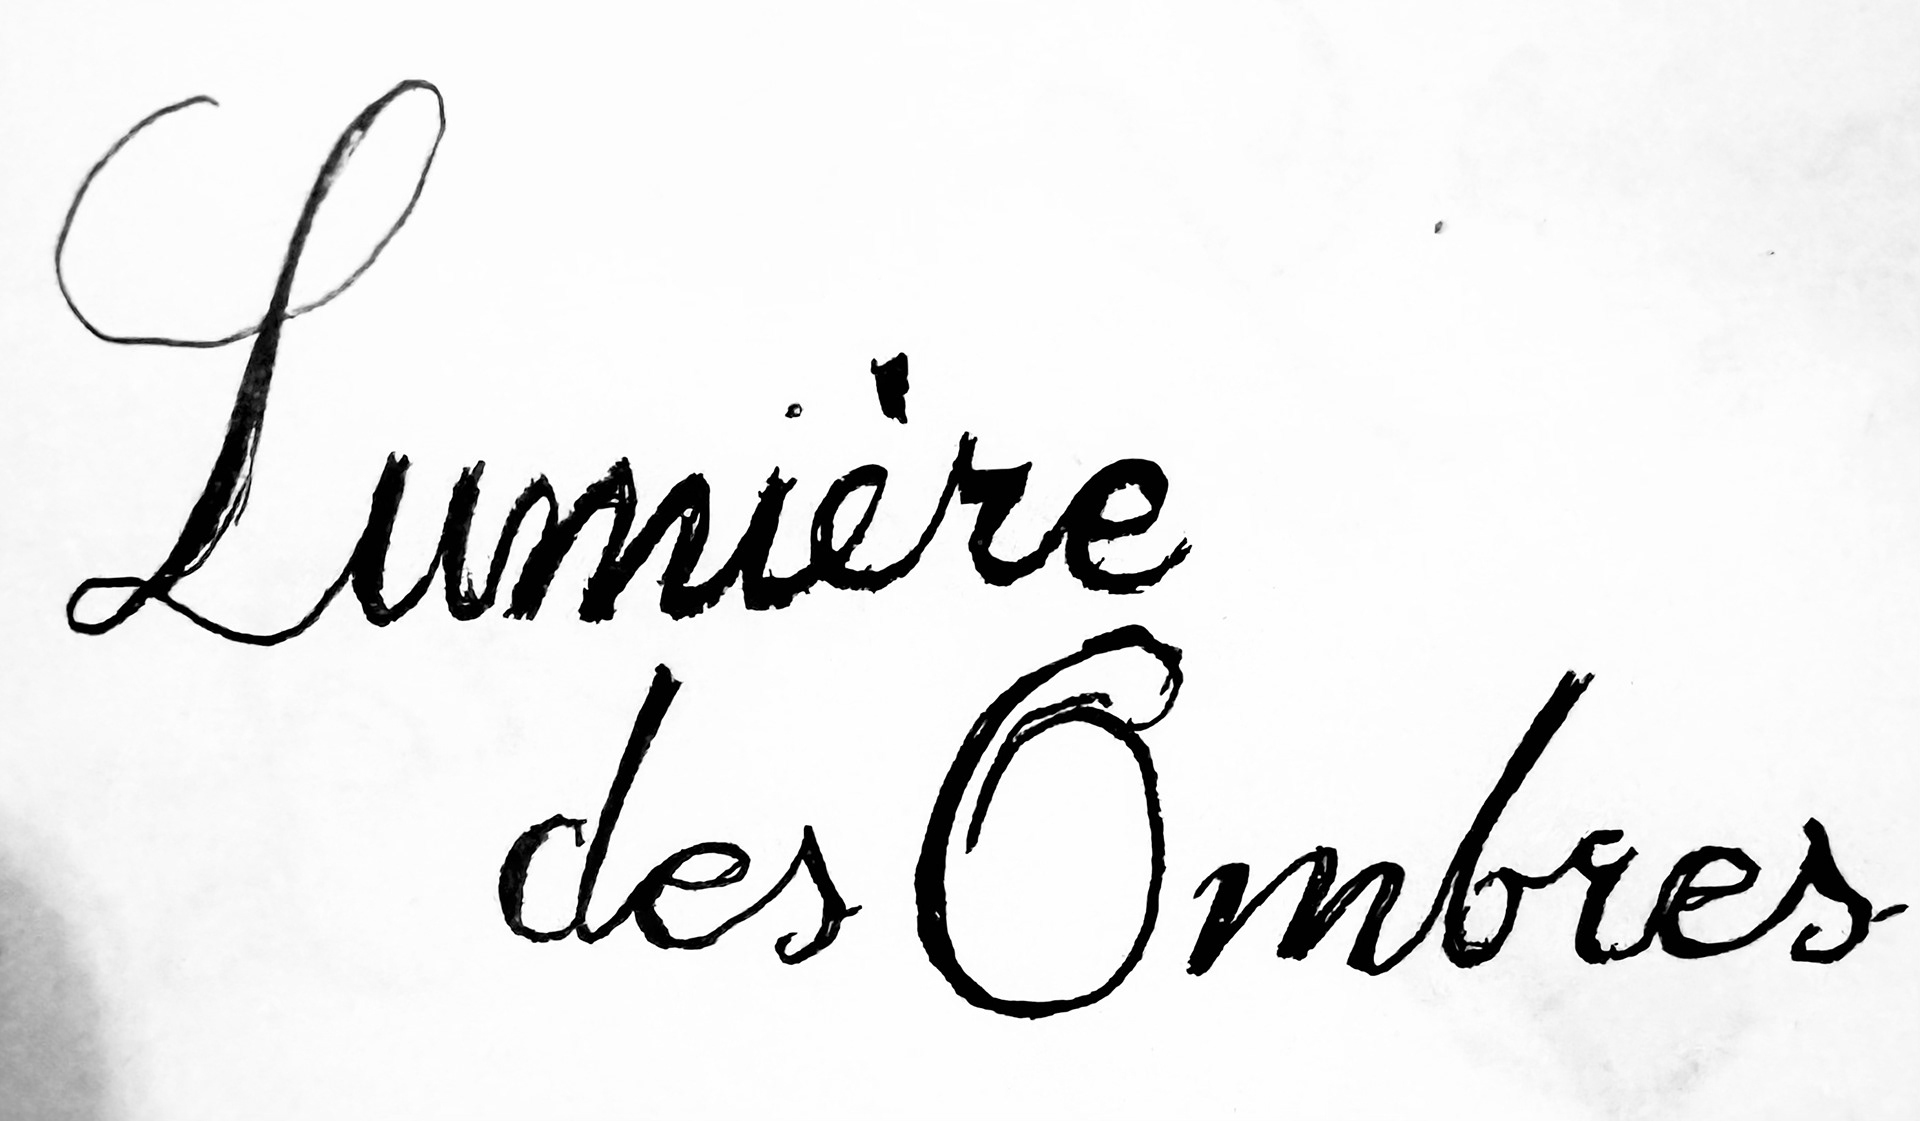 Lumière
des Ombres